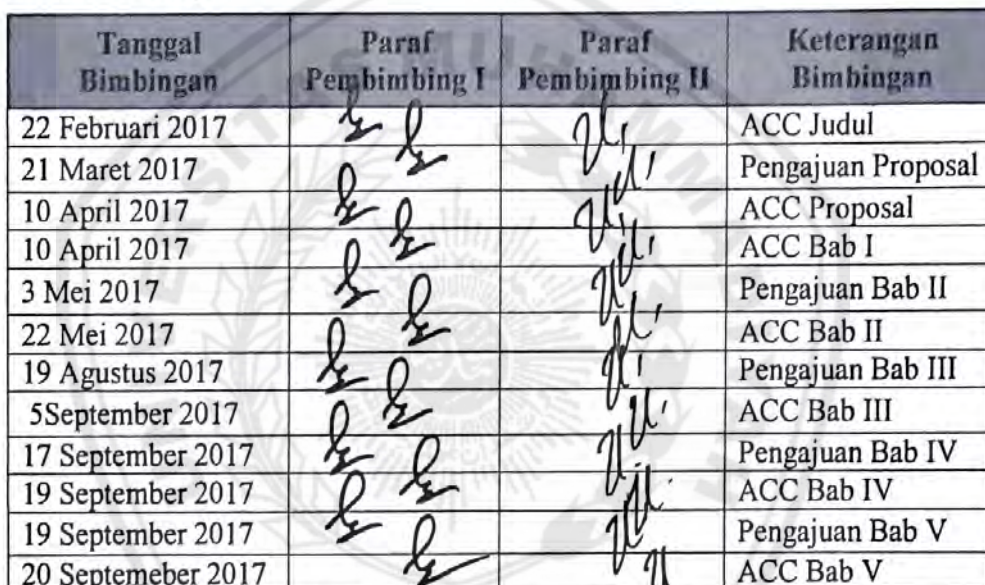 Tanggal Bimbingan Paraf Pembimbing I Paraf Pembimbing II Keterangan Bimbingan
22 Februari 2017 ACC Judul
21 Maret 2017 Pengajuan Proposal
10 April 2017 ACC Proposal
10 April 2017 ACC Bab I
3 Mei 2017 Pengajuan Bab II
22 Mei 2017 ACC Bab II
19 Agustus 2017 Pengajuan Bab III
5September 2017 ACC Bab III
17 September 2017 Pengajuan Bab IV
19 September 2017 ACC Bab IV
19 September 2017 Pengajuan Bab V
20 Septemeber 2017 ACC Bab V